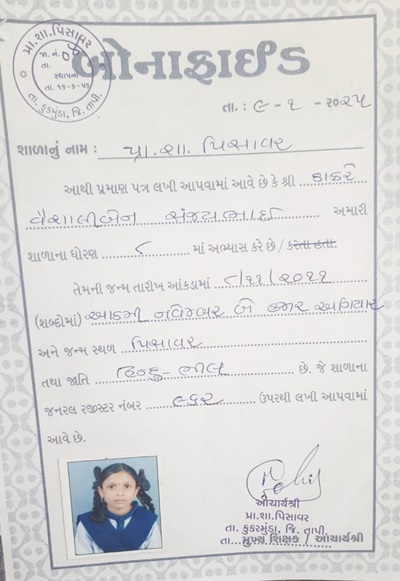 પ્રા.શા.પિસાવર
જા. નં. ૦૬
તા.
સ્થાપના
તા. ૧૬-૬-૫૬
તા. કુકરમુંડા, જિ. તાપી.
બોનાફાઈડ
તા. : ૯ - ૧ - ૨૦૨૫
શાળાનું નામ : પ્રા. શા. પિસાવર
આથી પ્રમાણ પત્ર લખી આપવામાં આવે છે કે શ્રી ઠાકરે
વૈશાલીબેન સંજયભાઈ અમારી
શાળાના ધોરણ ૮ માં અભ્યાસ કરે છે / કરતા હતા.
તેમની જન્મ તારીખ આંકડામાં ૮/૧૧/૨૦૧૧
(શબ્દોમાં) આઠમી નવેમ્બર બે હજાર અગિયાર
અને જન્મ સ્થળ પિસાવર
તથા જાતિ હિન્દુ-ભીલ છે. જે શાળાના
જનરલ રજીસ્ટર નંબર ૯૬૨ ઉપરથી લખી આપવામાં
આવે છે.
આચાર્યશ્રી
પ્રા.શા.પિસાવર
તા. કુકરમુંડા, જિ. તાપી.
તા... મુખ્ય શિક્ષક / આચાર્યશ્રી